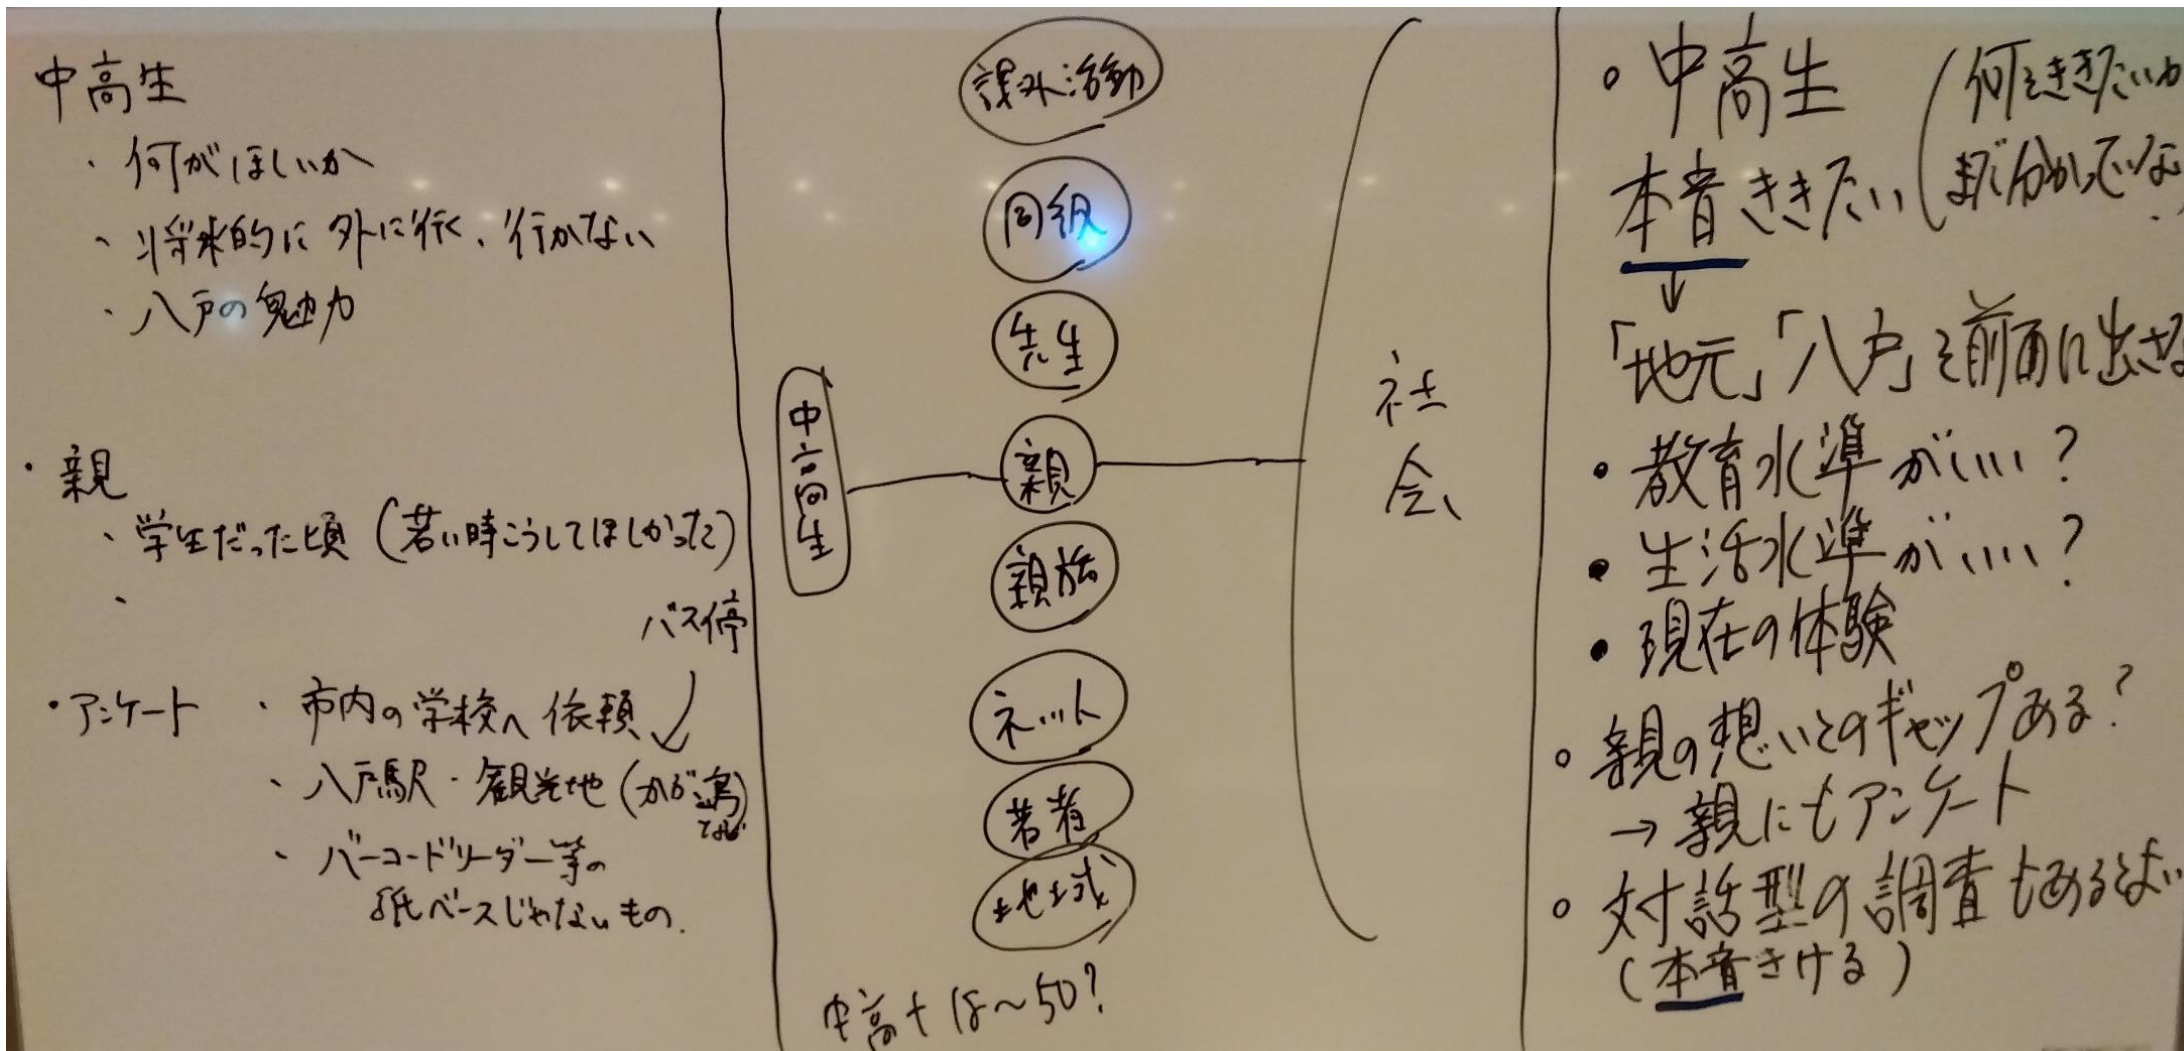 中高生
・何がほしいか
・将来的に外に行く、行かない
・八戸の魅力
・親
・学生だった頃（若い時こうしてほしかった）
・
バス停
・アンケート ・市内の学校へ依頼
・八戸駅・観光地（かぶ島など）
・バーコードリーダー等の
紙ベースじゃないもの.
課外活動
同級
先生
中高生
親
親族
ネット
若者
地域
社会
中高+18〜50?
○中高生
本音ききたい
（何をききたいか
まだ分かっていな
↓
「地元」「八戸」を前面に出さな
・教育水準がいい?
・生活水準がいい?
・現在の体験
○親の想いとのギャップある?
→親にもアンケート
○対話型の調査もあるとよい
（本音きける）